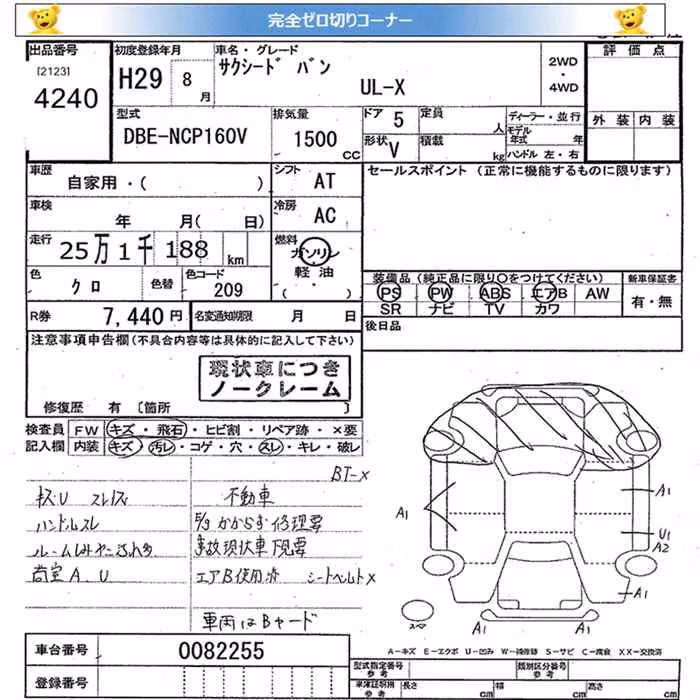 完全ゼロ切りコーナー
出品番号 [2123] 4240
初度登録年月 H29 8月
車名・グレード サクシード バン UL-X
2WD・4WD
評価点
外装 内装
型式 DBE-NCP160V
排気量 1500 CC
ドア 5
形状 V
定員 人
積載 kg
ディーラー・並行
モデル年式 年
ハンドル 左・右
車歴 自家用・( )
シフト AT
セールスポイント (正常に機能するものに限ります)
車検 年 月( 日)
冷房 AC
走行 25万1千188km
燃料 ガソリン 軽油 ( )
色 クロ
色替
色コード 209
装備品 (純正品に限り〇をつけてください)
新車保証書 有・無
PS PW ABS エアB AW
SR ナビ TV カワ
R券 7,440円
名変通知期限 月 日
後日品
注意事項申告欄(不具合内容等は具体的に記入して下さい)
現状車につき
ノークレーム
修復歴 有 [箇所 ]
検査員記入欄
FW キズ・飛石・ヒビ割・リペア跡・×要
内装 キズ 汚レ・コゲ・穴・スレ・キレ・破レ
BT-X
キズU スレ
不動車
ハンドルスレ
かからず修理要
事故現状車下見要
A、U
エアB使用済 シートベルトX
車両はBヤード
A1
A1
U1
A2
A1
A1
A1
スペア
A-キズ E-エクボ U-凹み W-補修跡 S-サビ C-腐食 XX-交換済
車台番号 0082255
登録番号
型式指定番号 参考
類別区分番号 参考
車庫証明用 参考 長さ cm 幅 cm 高さ cm